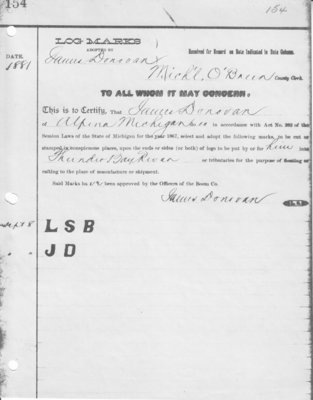 154
154
LOG MARKS
ADOPTED BY
DATE. Received for Record on Date Indicated in Date Column.
1881 James Donovan
Mich'l O'Brien County Clerk.
TO ALL WHOM IT MAY CONCERN:
This is to Certify, That James Donovan
of Alpena Michigan in accordance with Act No. of the
Session Laws of the State of Michigan for the year 1867, select and adopt the following marks, to be cut or
stamped in conspicuous places, upon the ends or sides (or both) of logs to be put by or for him into
Thunder Bay River or tributaries for the purpose of floating or
rafting to the place of manufacture or shipment.
Said Marks ha been approved by the Officers of the Boom Co.
James Donovan
Sept 8 L S B
J D